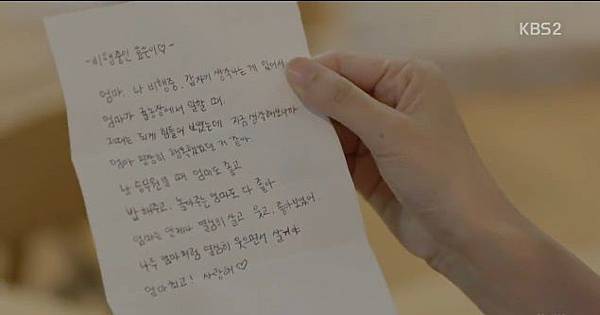 KBS2
-비행중인 효은이♡-
엄마. 나 비행중. 갑자기 생각나는 게 있어서.
엄마가 골농장에서 일할 때.
그때는 되게 힘들어 보였는데 지금 생각해보니까
엄마 굉장히 행복했었던 거 같아
난 승무원일 때 엄마도 좋고
밥해주고, 놀아주는 엄마도 다 좋아
엄마는 언제나 열심히 살고 웃고, 좋아보였어.
나두 엄마처럼 열심히 웃으면서 살거야
엄마 최고! 사랑해♡